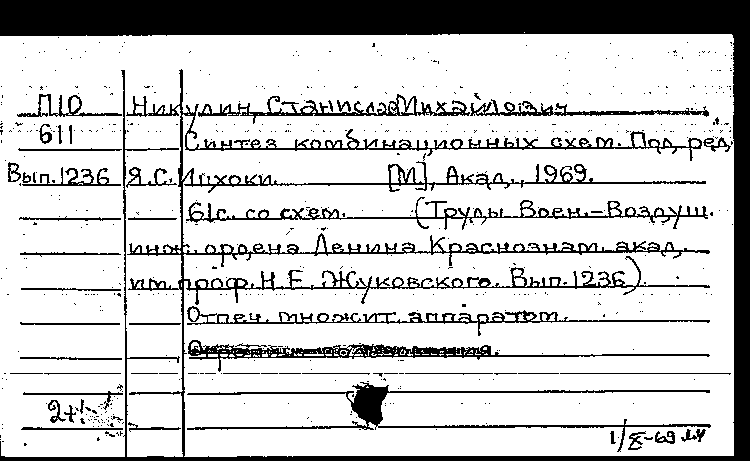 П10 Никулин, Станислав Михайлович
611 Синтез комбинационных схем. Под ред.
Вып.1236 Я.С. Ицхоки. [М.], Акад., 1969.
61с. со схем. (Труды Воен.-Воздуш.
инж. ордена Ленина Краснознам. акад.
им. проф. Н.Е. Жуковского. Вып. 1236)
Отпеч. множит. аппаратом.
2+1
1/X-69